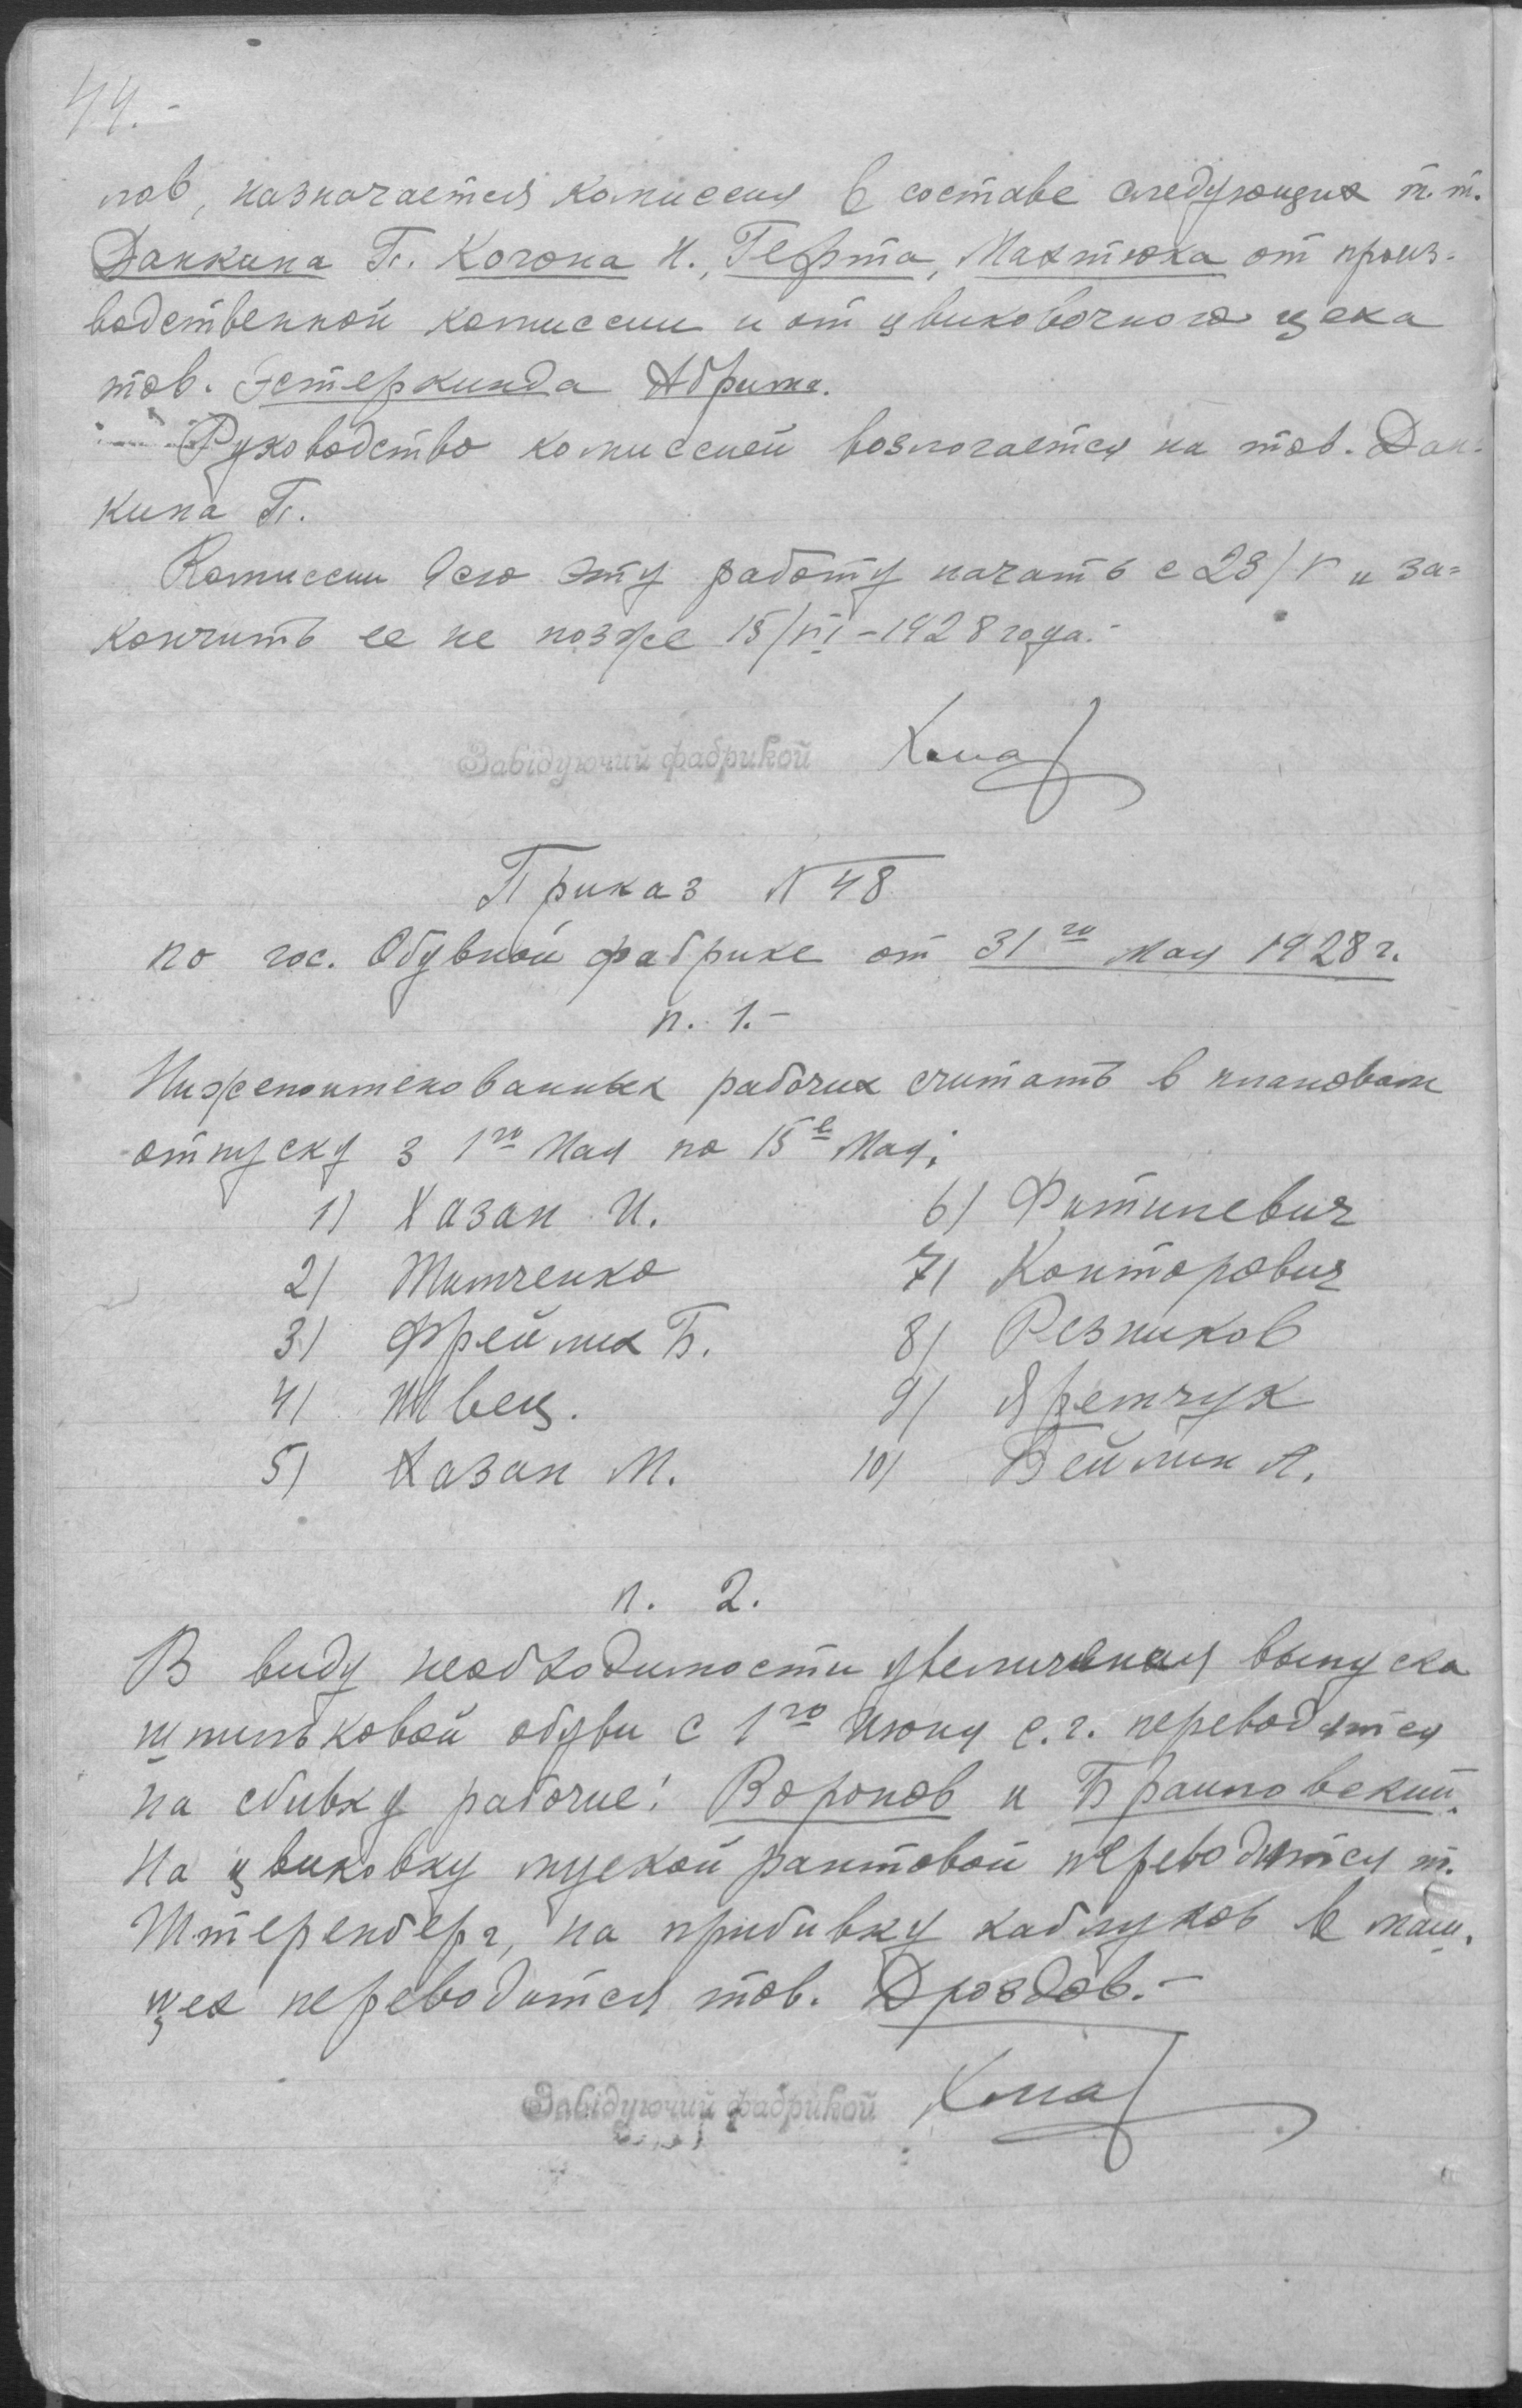 44.-
лов, назначается комиссия в составе следующих т.т.
Данкина Г. Когона И., Герта, Махтюка от произ-
водственной комиссии и от цвиковочного цеха
тов. Эстеркинда Абрима.
Руководство комиссией возлогается на тов. Дан-
кина Г.
Комиссии всю эту работу начать с 23/V и за=
кончить ее не позже 15/VI-1928 года.-
Завідуючий фабрикой
Приказ N 48
по гос. Обувной фабрике от 31го мая 1928 г.
п. 1.-
Нижепоитенованных рабочих считать в плановом
отпуску з 1го Мая по 15е Мая:
1) Хазан И.
2) Титченко
3) Фрейлих Б.
4) Швец.
5) Хазан М.
6) Фитилевич
7) Конторович
8) Резников
9) Яремчук
10) Бейлин А.
п. 2.
В виду необходимости увеличения выпуска
шпильковой обуви с 1го Июня с.г. переводятся
на сбивку рабочие: Воронов и Браиловский.
На цвиковку муской рантовой переводится т.
Штеренберг, на прибивку каблуков в маш.
цех переводится тов. Дроздов.-
Завідуючий фабрикой